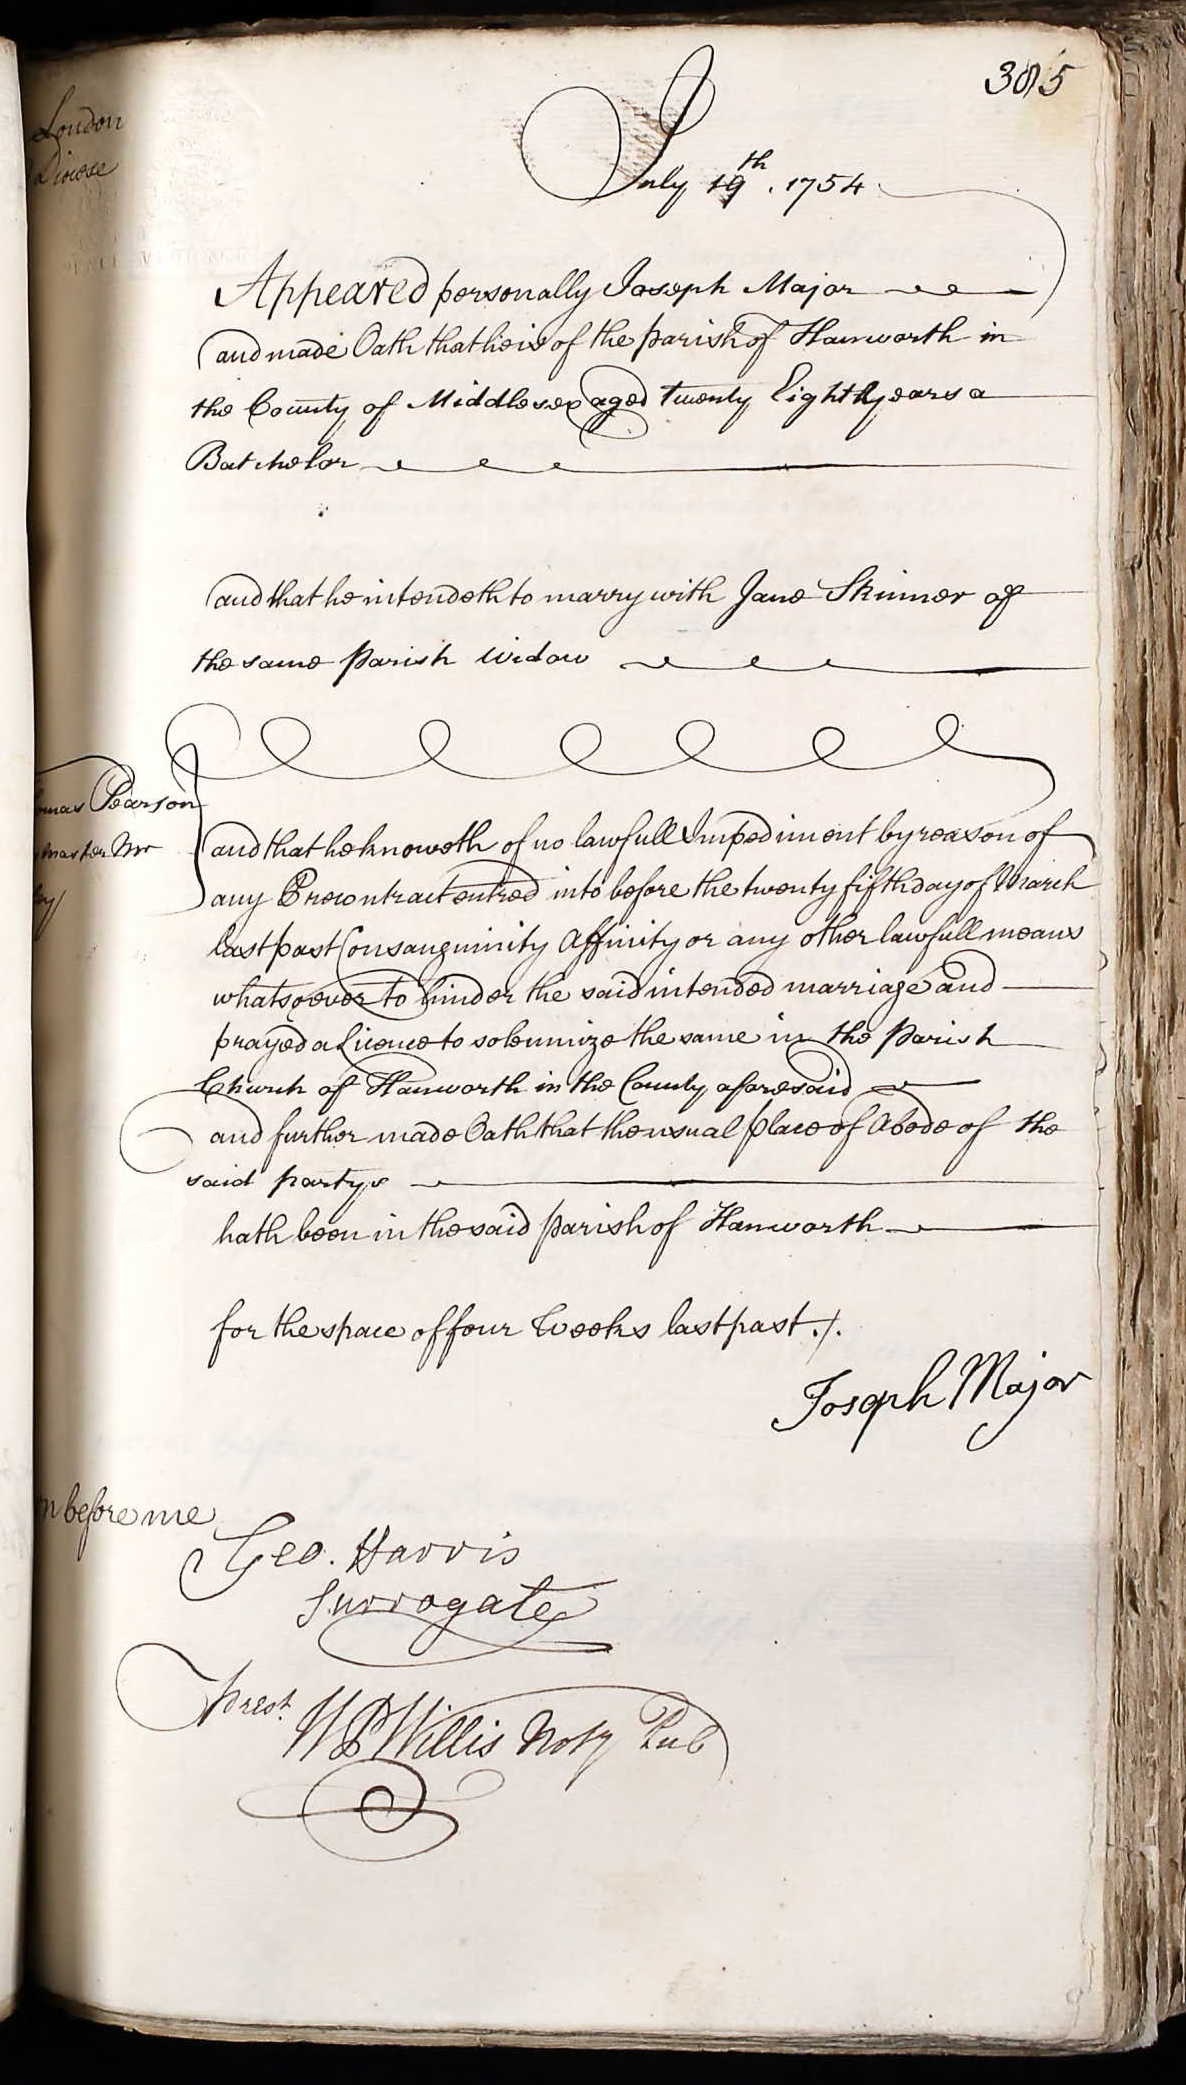 385
London
Diocese
July 19th. 1754
Appeared personally Joseph Major
and made Oath that he is of the parish of Hanworth in
the County of Middlesex aged twenty Eight years a
Batchelor
and that he intendeth to marry with Jane Skinner of
the same Parish Widow
omas Pearson
master Mr
and that he knoweth of no lawfull Impediment by reason of
any Precontract entred into before the twenty fifth day of March
last past Consanguinity Affinity or any other lawfull means
whatsoever to hinder the said intended marriage and
prayed a Licence to solemnize the same in the Parish
Church of Hanworth in the County aforesaid
and further made Oath that the usual place of Abode of the
said partys
hath been in the said parish of Hanworth
for the space of four Weeks last past ./.
Joseph Major
n before me
Geo. Harris
Surrogate
prest.
WP Willis Noty Pub